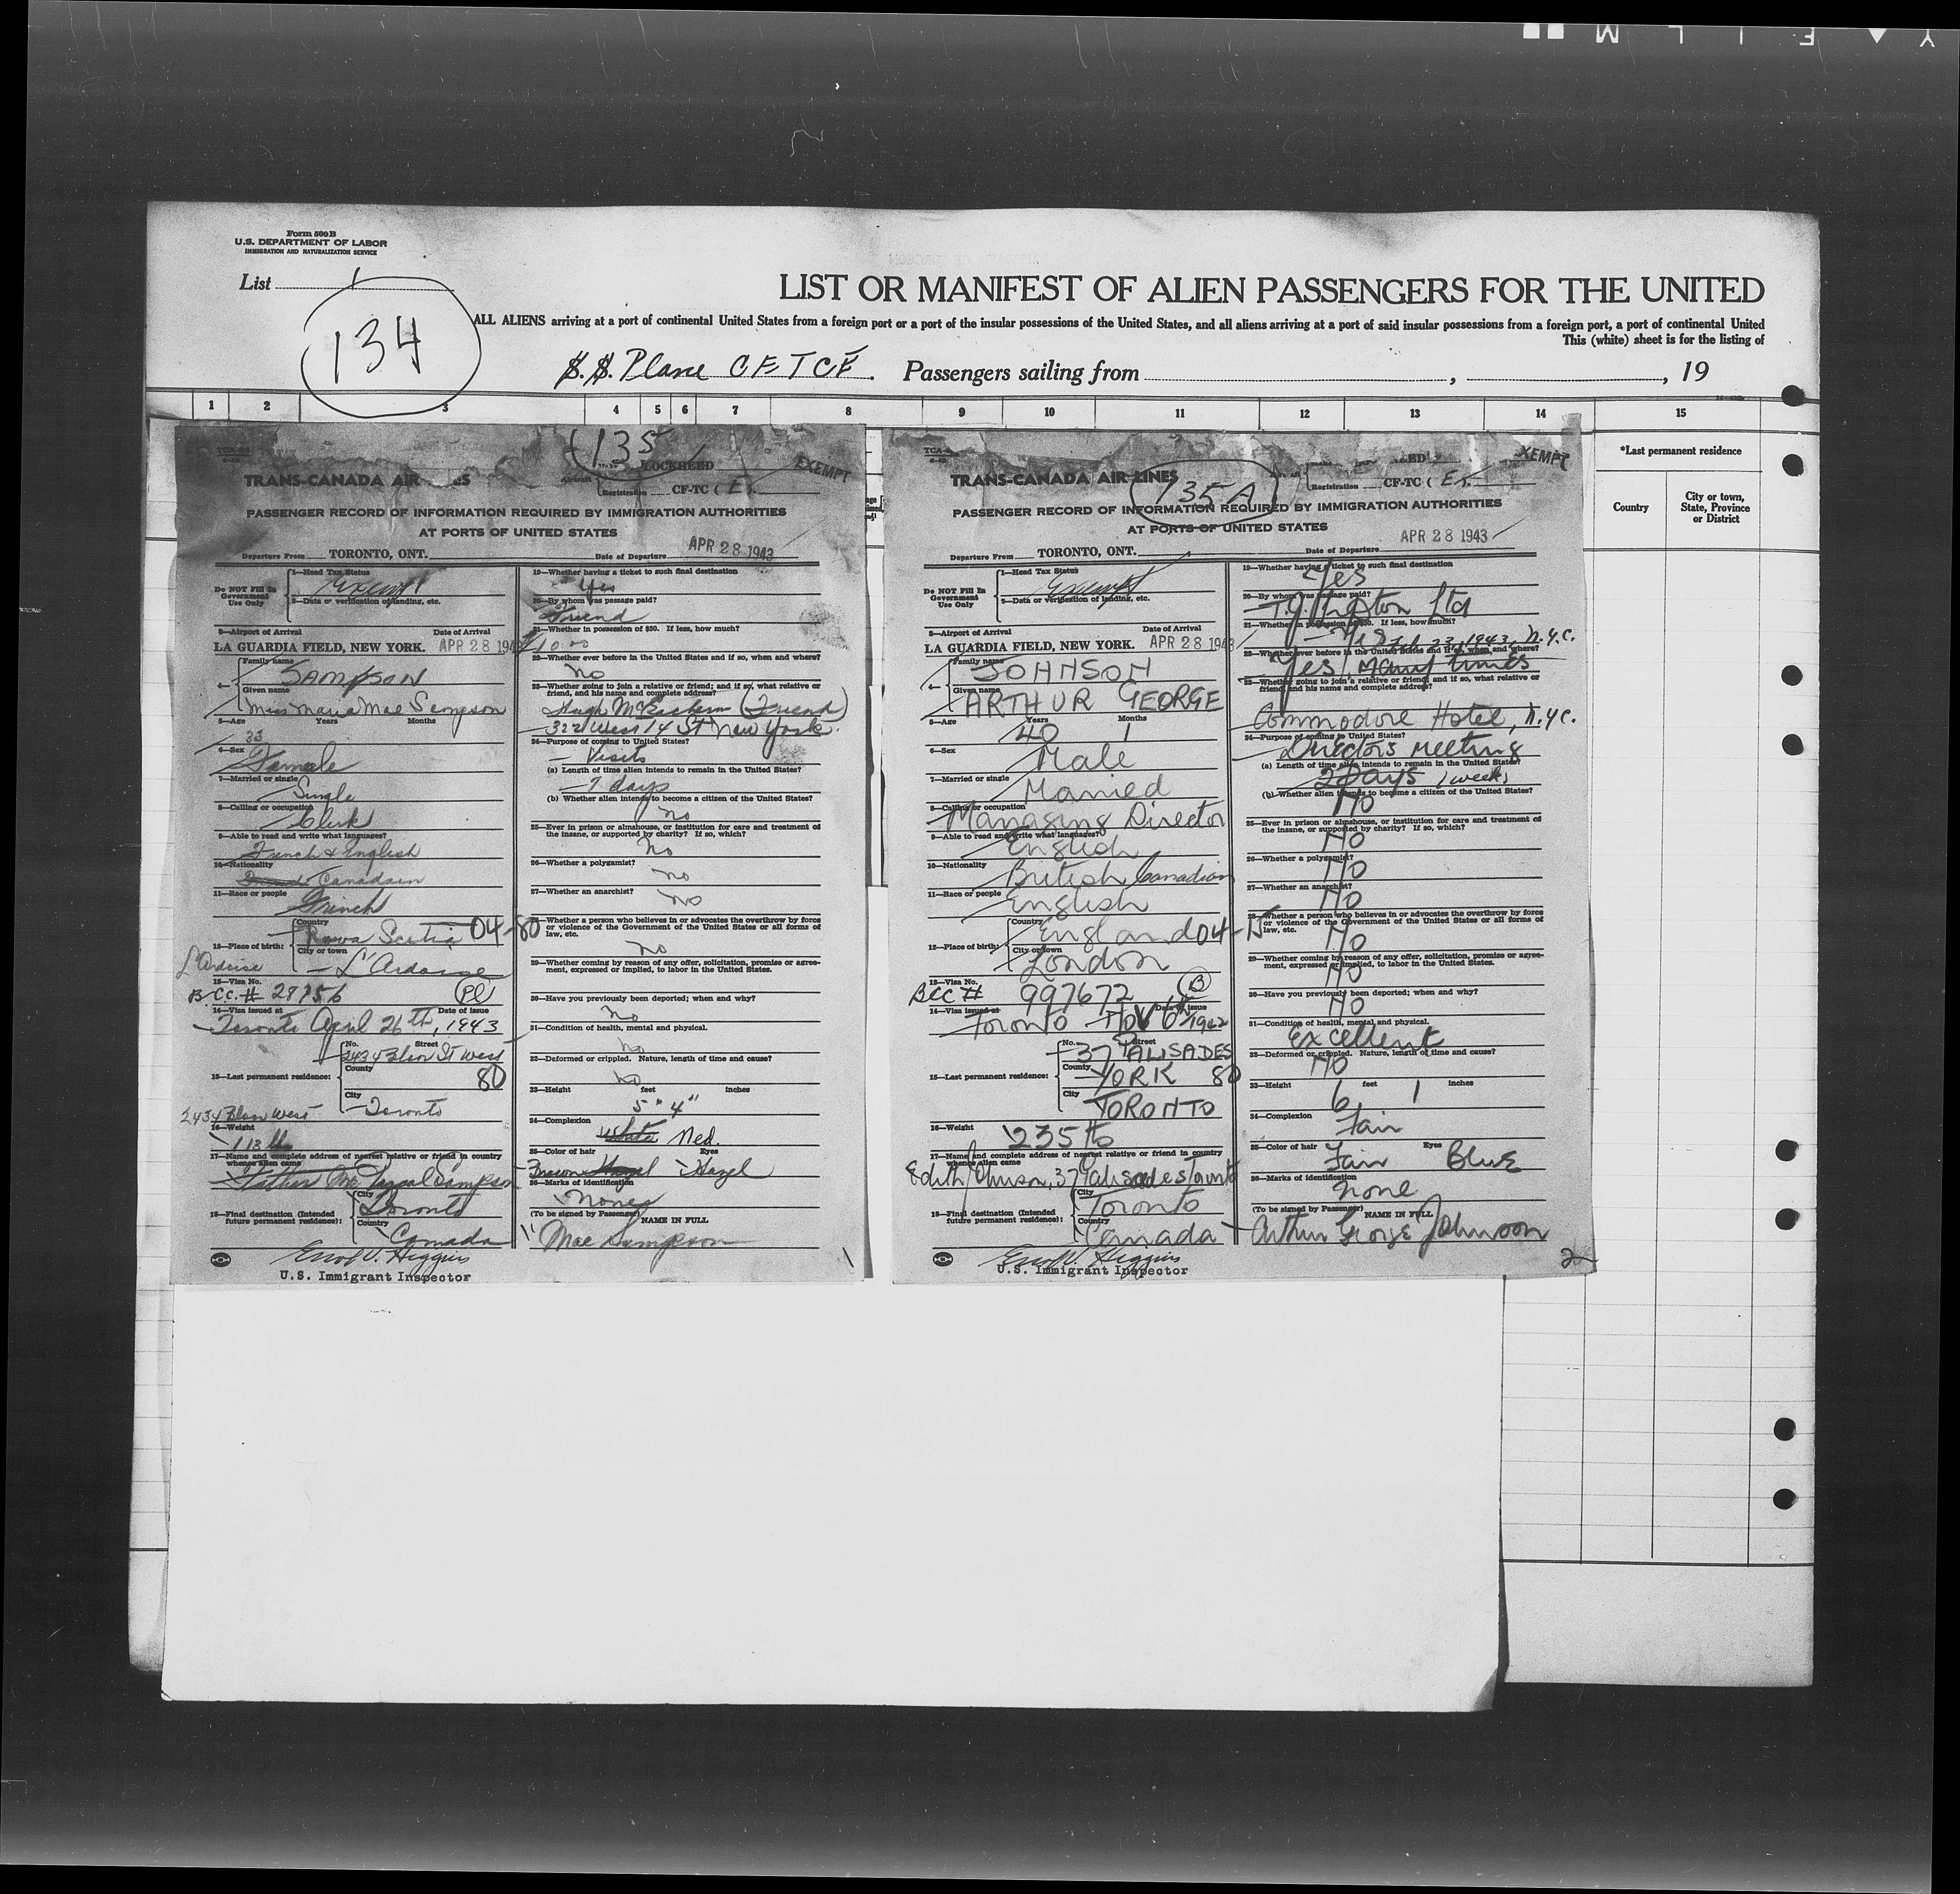 Y ▲ F I L M
Form 500B
U.S. DEPARTMENT OF LABOR
IMMIGRATION AND NATURALIZATION SERVICE
List 1
134
LIST OR MANIFEST OF ALIEN PASSENGERS FOR THE UNITED
ALL ALIENS arriving at a port of continental United States from a foreign port or a port of the insular possessions of the United States, and all aliens arriving at a port of said insular possessions from a foreign port, a port of continental United
This (white) sheet is for the listing of
S.S. Plane CF TCE. Passengers sailing from , , 19
1 2 3 4 5 6 7 8 9 10 11 12 13 14 15
*Last permanent residence
Country
City or town, State, Province or District
135
LOCKHEED
EXEMPT
TRANS-CANADA AIR
Aircraft Registration CF-TC ( E ).
PASSENGER RECORD OF INFORMATION REQUIRED BY IMMIGRATION AUTHORITIES
AT PORTS OF UNITED STATES
Departure From TORONTO, ONT. Date of Departure APR 28 1943
Do NOT Fill In Government Use Only
1—Head Tax Status
Exempt
2—Data or verification of landing, etc.
3—Airport of Arrival Date of Arrival
LA GUARDIA FIELD, NEW YORK. APR 28 1943
4— Family name
SAMPSON
Given name
Miss Maria Mae Sampson
5—Age Years Months
33
6—Sex
Female
7—Married or single
Single
8—Calling or occupation
Clerk
9—Able to read and write what languages?
French & English
10—Nationality
Canadian
11—Race or people
French
12—Place of birth: Country
Nova Scotia 04-80
City or town
L'Ardoise
L'Ardoise
13—Visa No.
B.C.C. # 27756
14—Visa issued at Date of issue
Toronto April 26th, 1943
15—Last permanent residence: No. Street
2434 Bloor St West
County
80
City
Toronto
2434 Bloor West
16—Weight
112 lb
17—Name and complete address of nearest relative or friend in country whence alien came
Father Mr Sampson
18—Final destination (Intended future permanent residence): City
Toronto
Country
Canada
Errol V. Higgins
U.S. Immigrant Inspector
19—Whether having a ticket to such final destination
Yes
20—By whom was passage paid?
Friend
21—Whether in possession of $50. If less, how much?
10.00
22—Whether ever before in the United States and if so, when and where?
No
23—Whether going to join a relative or friend; and if so, what relative or friend, and his name and complete address?
Hugh McEachern (Friend)
322 West 14 St New York.
24—Purpose of coming to United States?
Visits
(a) Length of time alien intends to remain in the United States?
7 days
(b) Whether alien intends to become a citizen of the United States?
No
25—Ever in prison or almshouse, or institution for care and treatment of the insane, or supported by charity? If so, which?
No
26—Whether a polygamist?
No
27—Whether an anarchist?
No
28—Whether a person who believes in or advocates the overthrow by force or violence of the Government of the United States or all forms of law, etc.
No
29—Whether coming by reason of any offer, solicitation, promise or agreement, expressed or implied, to labor in the United States.
30—Have you previously been deported; when and why?
No
31—Condition of health, mental and physical.
No
32—Deformed or crippled. Nature, length of time and cause?
No
33—Height feet inches
5" 4"
34—Complexion
White Med.
35—Color of hair Eyes
Brown Hazel Hazel
36—Marks of identification
None
(To be signed by Passenger) NAME IN FULL
Mae Sampson
1
135A
EXEMPT
TRANS-CANADA AIR LINES
Registration CF-TC ( E ).
PASSENGER RECORD OF INFORMATION REQUIRED BY IMMIGRATION AUTHORITIES
AT PORTS OF UNITED STATES
Departure From TORONTO, ONT. Date of Departure APR 28 1943
Do NOT Fill In Government Use Only
1—Head Tax Status
Exempt
2—Data or verification of landing, etc.
3—Airport of Arrival Date of Arrival
LA GUARDIA FIELD, NEW YORK. APR 28 1943
4— Family name
JOHNSON
Given name
ARTHUR GEORGE
5—Age Years Months
40 1
6—Sex
Male
7—Married or single
Married
8—Calling or occupation
Managing Director
9—Able to read and write what languages?
English
10—Nationality
British Canadian
11—Race or people
English
12—Place of birth: Country
England 04-15
City or town
London
13—Visa No.
BCC # 997672 B
14—Visa issued at Date of issue
Toronto Nov 6th 1942
15—Last permanent residence: No. Street
37 PALISADES
County
YORK 80
City
TORONTO
16—Weight
235 lb
17—Name and complete address of nearest relative or friend in country whence alien came
Edith Johnson, 37 Palisades Toronto
18—Final destination (Intended future permanent residence): City
Toronto
Country
Canada
Errol V. Higgins
U.S. Immigrant Inspector
19—Whether having a ticket to such final destination
Yes
20—By whom was passage paid?
Ltd
21—Whether in possession of $50. If less, how much?
Yes Feb. 23, 1943, N.Y.C.
22—Whether ever before in the United States and if so, when and where?
Yes, Many times
23—Whether going to join a relative or friend; and if so, what relative or friend, and his name and complete address?
Commodore Hotel, N.Y.C.
24—Purpose of coming to United States?
Directors Meeting
(a) Length of time alien intends to remain in the United States?
2 Days (week)
(b) Whether alien intends to become a citizen of the United States?
No
25—Ever in prison or almshouse, or institution for care and treatment of the insane, or supported by charity? If so, which?
No
26—Whether a polygamist?
No
27—Whether an anarchist?
No
28—Whether a person who believes in or advocates the overthrow by force or violence of the Government of the United States or all forms of law, etc.
No
29—Whether coming by reason of any offer, solicitation, promise or agreement, expressed or implied, to labor in the United States.
No
30—Have you previously been deported; when and why?
No
31—Condition of health, mental and physical.
Excellent
32—Deformed or crippled. Nature, length of time and cause?
No
33—Height feet inches
6 1
34—Complexion
Fair
35—Color of hair Eyes
Fair Blue
36—Marks of identification
None
(To be signed by Passenger) NAME IN FULL
Arthur George Johnson
2